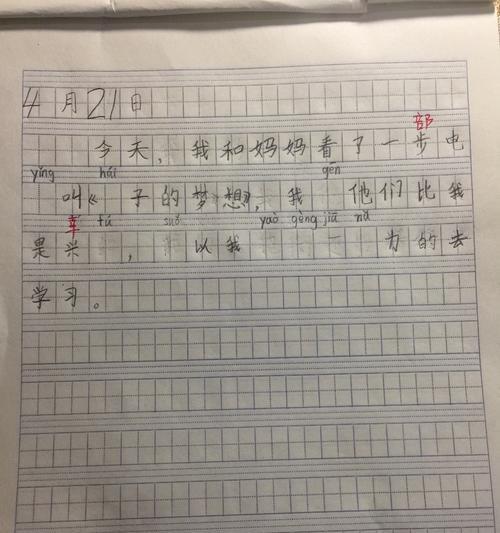 4月21日
部
今天，我和妈妈看了一步电
yǐng hái gēn
叫《 子的梦想》，我 他们比我
幸 fú suǒ yào gèng jiā nǔ
是兴 ， 以我 为的去
学习。